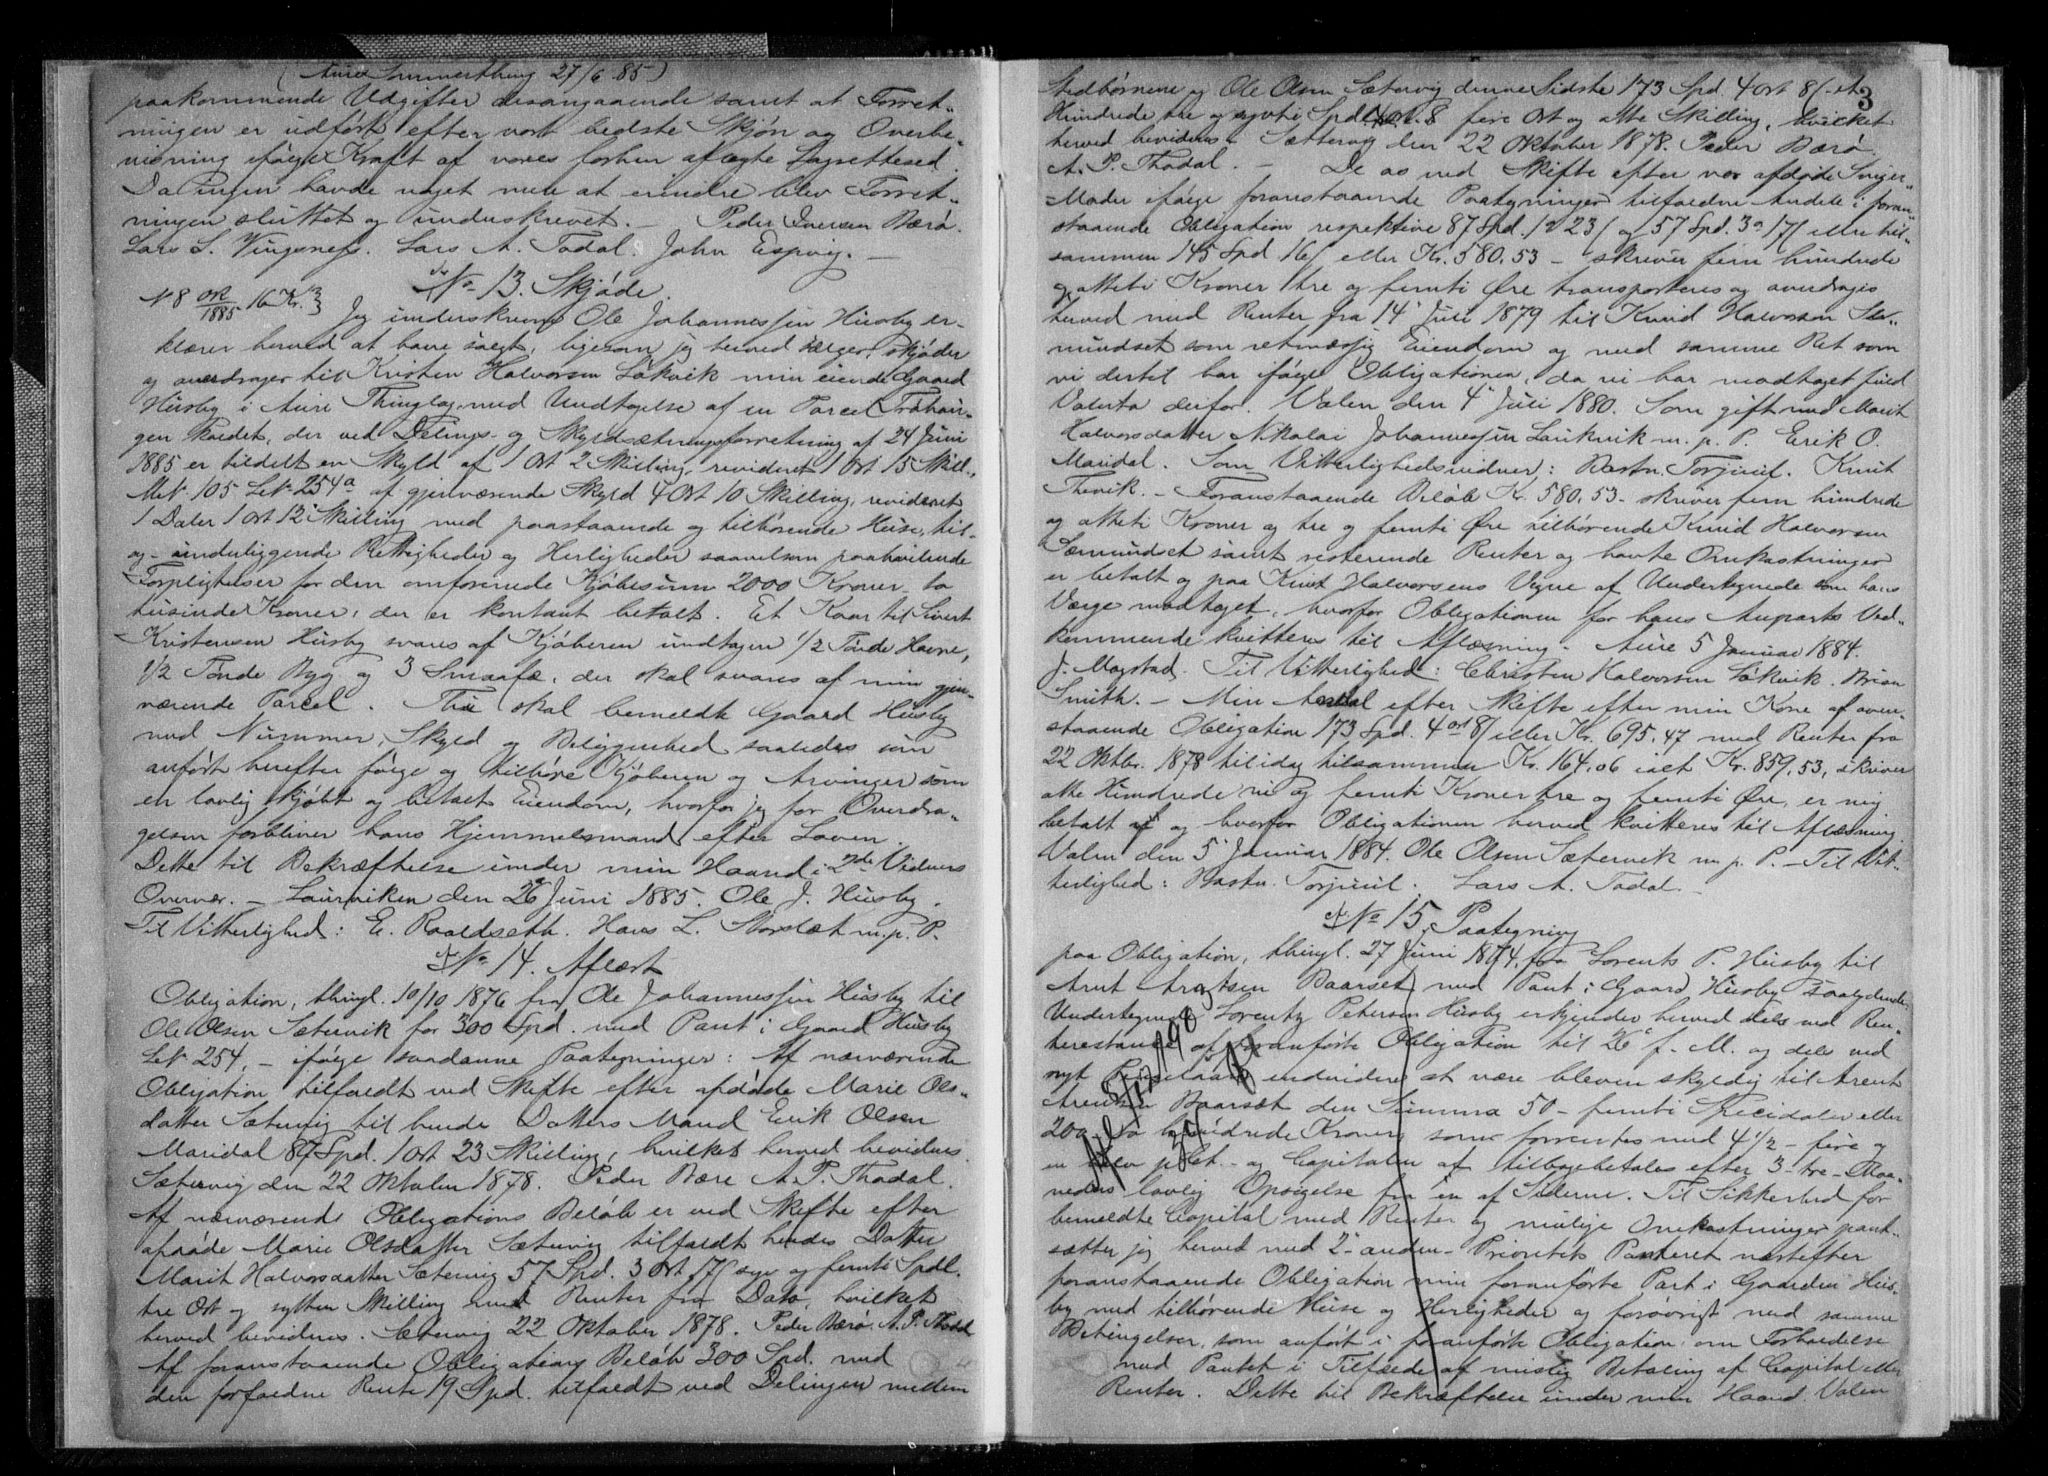 (Aure Sommerthing 27/6 85)
paakommende Udgifter desangaaende samt at Forret-
ningen er udført efter vort bedste Skjøn og Overbe-
visning ifølge Kraft af vores forhen aflagte Lagrettesed.
Da ingen havde noget mere at erindre blev Forret-
ningen sluttet og underskrevet. - Peder Iversen Bærø.
Lars L. Vingsnes. Lars A. Todal. John Espvig. -
No 13. Skjøde.
№ 8 ork/1885 16 Kr.
Jeg underskrevne Ole Johannessen Husby er-
klærer herved at have solgt, ligesom jeg herved sælger, skjøder
og overdrager til Kristen Halvorsen Løkvik min eiende Gaard
Husby i Aure Thinglag med Undtagelse af en Parcel Trøhau-
gen kaldet, der ved Delings- og Skyldsætningsforretning af 24 Juni
1885 er tildelt en Skyld af 1 Ort 2 Skilling, revideret 1 Ort 15 Skill.,
Mat. 105 Lat. 254a af gjenværende Skyld 4 Ort 10 Skilling, revideret
1 Daler 1 Ort 12 Skilling med paastaaende og tilhørende Huse, til-
og underliggende Rettigheder og Herligheder saavelsom paahvilende
Forpligtelser for den omforenede Kjøbesum 2000 Kroner to
tusinde Kroner, der er kontant betalt. Et Kaar til Sivert
Kristensen Husby svares af Kjøberen undtagen 1/2 Tønde Havre,
1/2 Tønde Byg og 3 Smaafæ, der skal svares af min gjen-
værende Parcel. Thi skal bemeldte Gaard Husby
med Nummer, Skyld og Beliggenhed saaledes som
anført herefter følge og tilhøre Kjøberen og Arvinger som
en lovlig kjøbt og betalt Eiendom, hvorfor jeg for Overdra-
gelsen forbliver hans Hjemmelsmand efter Loven.
Dette til Bekræftelse under min Haand i 2de Vidners
Overvær. - Laurviken den 26 Juni 1885. Ole J. Husby.
Til Vitterlighed: E. Roaldseth. Hans L. Storslæt m. p. P.
No 14. Aflæst
Obligation, thingl. 10/10 1876 fra Ole Johannessen Husby til
Ole Olsen Sætervik for 300 Spd. med Pant i Gaard Husby
Lat 254, - ifølge saadanne Paategninger: Af nærværende
Obligation tilfaldt ved Skifte efter afdøde Marie Ols-
datter Sætervig til hendes Datters Mand Erik Olsen
Mandal 87 Spd. 1 Ort 23 Skilling, hvilket herved bevidnes.
Sætervig den 22 Oktober 1878. Peder Bærø A. P. Thodal.
Af nærværende Obligations Beløb er ved Skifte efter
afdøde Marie Olsdatter Sætervig tilfaldt hendes Datter
Marit Halvorsdatter Sætervig 57 Spd. 3 Ort 17 syv og femti Spdl.
tre Ort og sytten Skilling med Renter fra Dato, hvilket
herved bevidnes. Sætervig 22 Oktober 1878. Peder Bærø. A. P. Thodal
Af foranstaaende Obligations Beløb 300 Spd. med
den forfaldne Rente 19 Spd. tilfaldt ved Delingen mellem
3
Stedbørnene og Ole Olsen Sætervig denne Sidste 173 Spd. 4 Ort 8 et
Hundrede tre og syvti Spd. fire Ort og otte Skilling, hvilket
herved bevidnes. Sættervig den 22 Oktober 1878. Peder Bærø.
A. P. Thodal. - De os ved Skifte efter vor afdøde Sviger-
Moder ifølge foranstaaende Paategninger tilfaldne Andele i foran-
staaende Obligation respektive 87 Spd. 1 23 og 57 Spd. 3 17 eller til-
sammen 145 Spd 16 eller Kr. 580.53 - skriver fem hundrede
og otteti Kroner tre og femti Øre transporteres og overdrages
herved med Renter fra 14 Juli 1879 til Knud Halvorsen Sæ-
mundset som retmæssig Eiendom og med samme Ret som
vi dertil har ifølge Obligationen, da vi har modtaget fuld
Valuta derfor. Valen den 4 Juli 1880. Som gift med Marit
Halvorsdatter Nikolai Johannessen Laukvik m. p. P. Erik O.
Mandal. Som Vitterlighedsvidner: Bastn. Torjuul. Knut
Thevik. - Foranstaaende Beløb Kr. 580.53 - skriver fem hundrede
og otteti Kroner og tre og femti Øre tilhørende Knud Halvorsen
Sæmundset samt resterende Renter og havte Omkastninger
er betalt og paa Knut Halvorsens Vegne af Undertegnede som hans
Værge modtaget, hvorfor Obligationen for hans Anparts Ved-
kommende kvitteres til Aflæsning. Aure 5 Januar 1884.
J. Mogstad. Til Vitterlighed: Christen Halvorsen Løkvik. Brian
Smith. - Min Andel efter Skifte efter min Kone af oven-
staaende Obligation 173 Spd. 4 ort 8 eller Kr. 695.47 med Renter fra
22 Oktbr. 1878 til idag tilsammen Kr. 164,06 ialt Kr. 859,53, skriver
otte Hundrede ni og femti Kroner tre og femti Øre, er mig
betalt og hvorfor Obligationen herved kvitteres til Aflæsning
Valen den 5 Januar 1884. Ole Olsen Sætervik m. p. P. - Til Vit-
terlighed: Bastn. Torjuul. Lars A. Todal. -
No 15, Paategning
paa Obligation, thingl. 27 Juni 1874, fra Lorents P. Husby til
Arnt Arntsen Baarset med Pant i Gaard Husby saalydende:
Undertegnede Lorents Petersen Husby erkjender herved dels ved Ren-
terestance af foranførte Obligation til 26 f. M. og dels ved
nyt Pengelaan endvidere at være bleven skyldig til Arent
Arentsen Baarset den Summa 50 - femti Specidaler eller
200 to hundrede Kroner som forrentes med 4 1/2 - fire og
en halv pCt. - og Capitalen at tilbagebetales efter 3 - tre - Maa-
neders lovlig Opsigelse fra en af Siderne. Til Sikkerhed for
bemeldte Capital med Renter og mulige Omkostninger pant-
sætter jeg herved med 2 - anden - Prioritets Panteret næstefter
foranstaaende Obligation min foranførte Part i Gaarden Hus-
by med tilhørende Huse og Herligheder og forøvrigt med samme
Betingelser, som anført i foranførte Obligation om Forholdelse
med Pantet i Tilfælde af mislig Betaling af Capital eller
Renter. Dette til Bekræftelse under min Haand. Valen